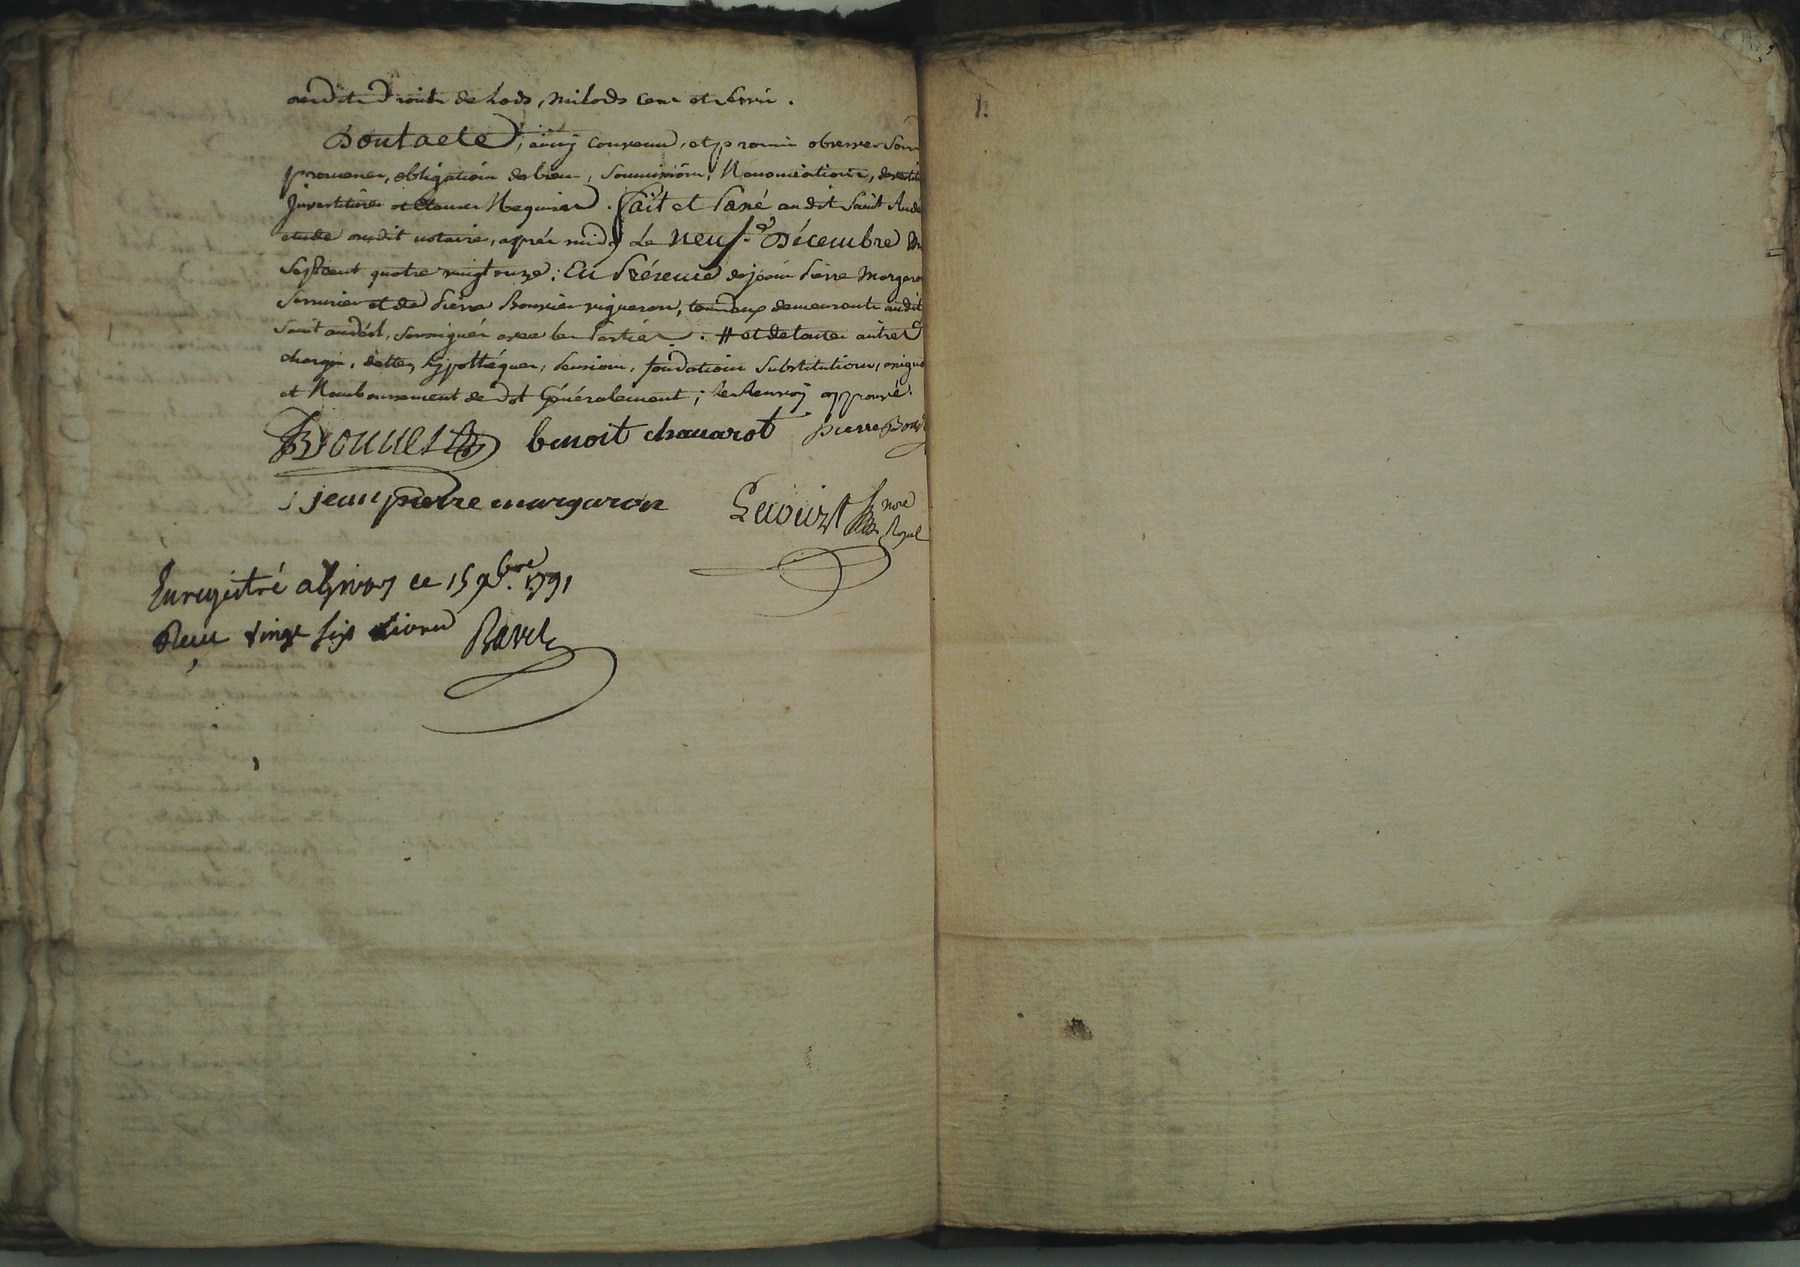 susdits droits de Lods, milods cens et servis.
Dont acte, ainsi convenu, et promis observer sous
promesses, obligation de biens, soumissions, Renonciations,
Investitures et Clauses Requises. Fait et Passé audit Saint Andé
étude dudit notaire, après midy Le neuf Décembre
Sept cent quatre vingt onze; En Présence de jean Pierre Margaron
Serrurier et de Pierre vigneron, tous deux demeurants audit
Saint andéol, soussignés avec les Parties. # et de toutes autres
charges, dettes, hypothéques, Pensions, fondations substitutions,
et Remboursement de Dot Généralement; le Renvoy approuvé.
Bonnest benoit chavarot pierre
jean pierre margaron nore Royal
Enregistré a Givors ce 15 Xbre. 1791
Reçu vingt six Livres Ravel